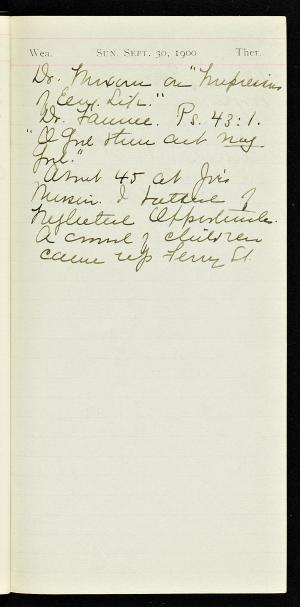 Wea. Sun. Sept. 30, 1900 Ther.
Dr. Mixom on "Impressions
of Early Life."
Dr. Faunce. Ps. 43:1.
"O God thou art my
God."
About 45 at Joe's
Mission. I talked of
Neglected Opportunities.
A crowd of children
came up Ferry St.